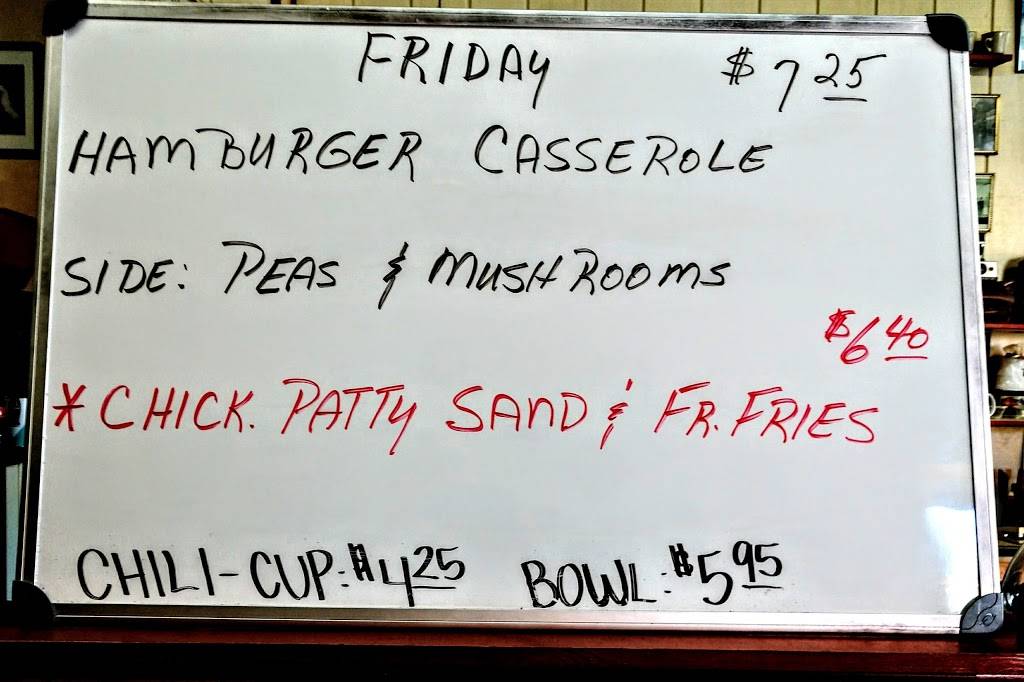 FRIDAY $7 25
HAMBURGER CASSEROLE
SIDE: PEAS & MUSHROOMS
$6 40
* CHICK. PATTY SAND & FR. FRIES
CHILI-CUP: $4 25 BOWL: $5 95